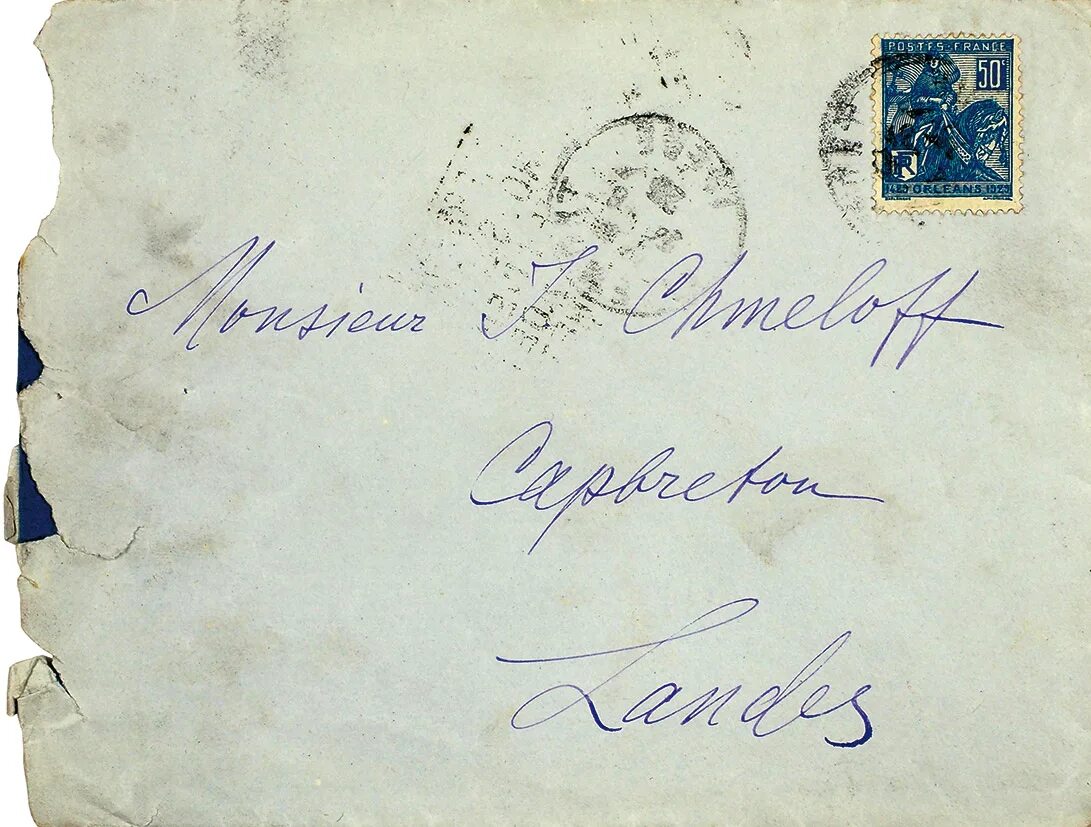 POSTES-FRANCE
50c
RF
1429 ORLEANS 1929
Monsieur I Chmeloff
Capbreton
Landes